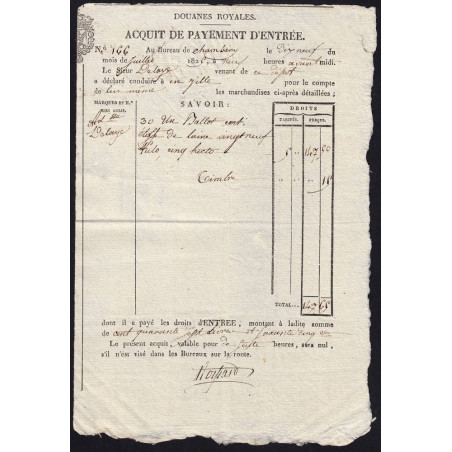 DOUANES ROYALES.
ACQUIT DE PAYEMENT D'ENTRÉE.
N.º 166 Au Bureau de chambéry le dix neuf du
mois de juillet 1821, à heures avant midi.
Le Sieur Delaye venant de ce dépôt
a déclaré conduire à en ville pour le compte
de lui même les marchandises ci-après détaillées;
MARQUES ET N.os
DES COLIS.
SAVOIR:
DROITS
TARIFÉS. PERÇUS.
Delaye
30 Un Ballot cont.
étoffe de laine vingt neuf
Kilo, cinq hecto 5 " 147 50
Timbre " " " 15
TOTAL... 147 65
dont il a payé les droits d'ENTRÉE, montant à ladite somme
de cent quarante sept livres et soixante cinq
Le présent acquit, valable pour de suite heures, sera nul,
s'il n'est visé dans les Bureaux sur la route.